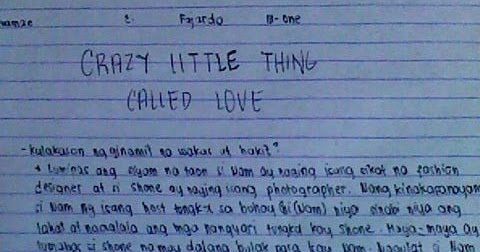 C. Fajardo III-One
CRAZY LITTLE THING
CALLED LOVE
-Kulakasan ng ginamit na wakas at bakit?
ang siyam na taon si Nam ay naging isang sikat na fashion
designer at si Shone ay naging isang photographer. Nang kinakapanayam
si Nam ng isang host tungkol sa buhay (Nam) niya sinabi niya ang
lahat at naaalala ang mga nangyari tungkol kay Shone. Maya-maya ay
lumabas si Shone na may dalang bulak para kay Nam. Nagulat si Nam